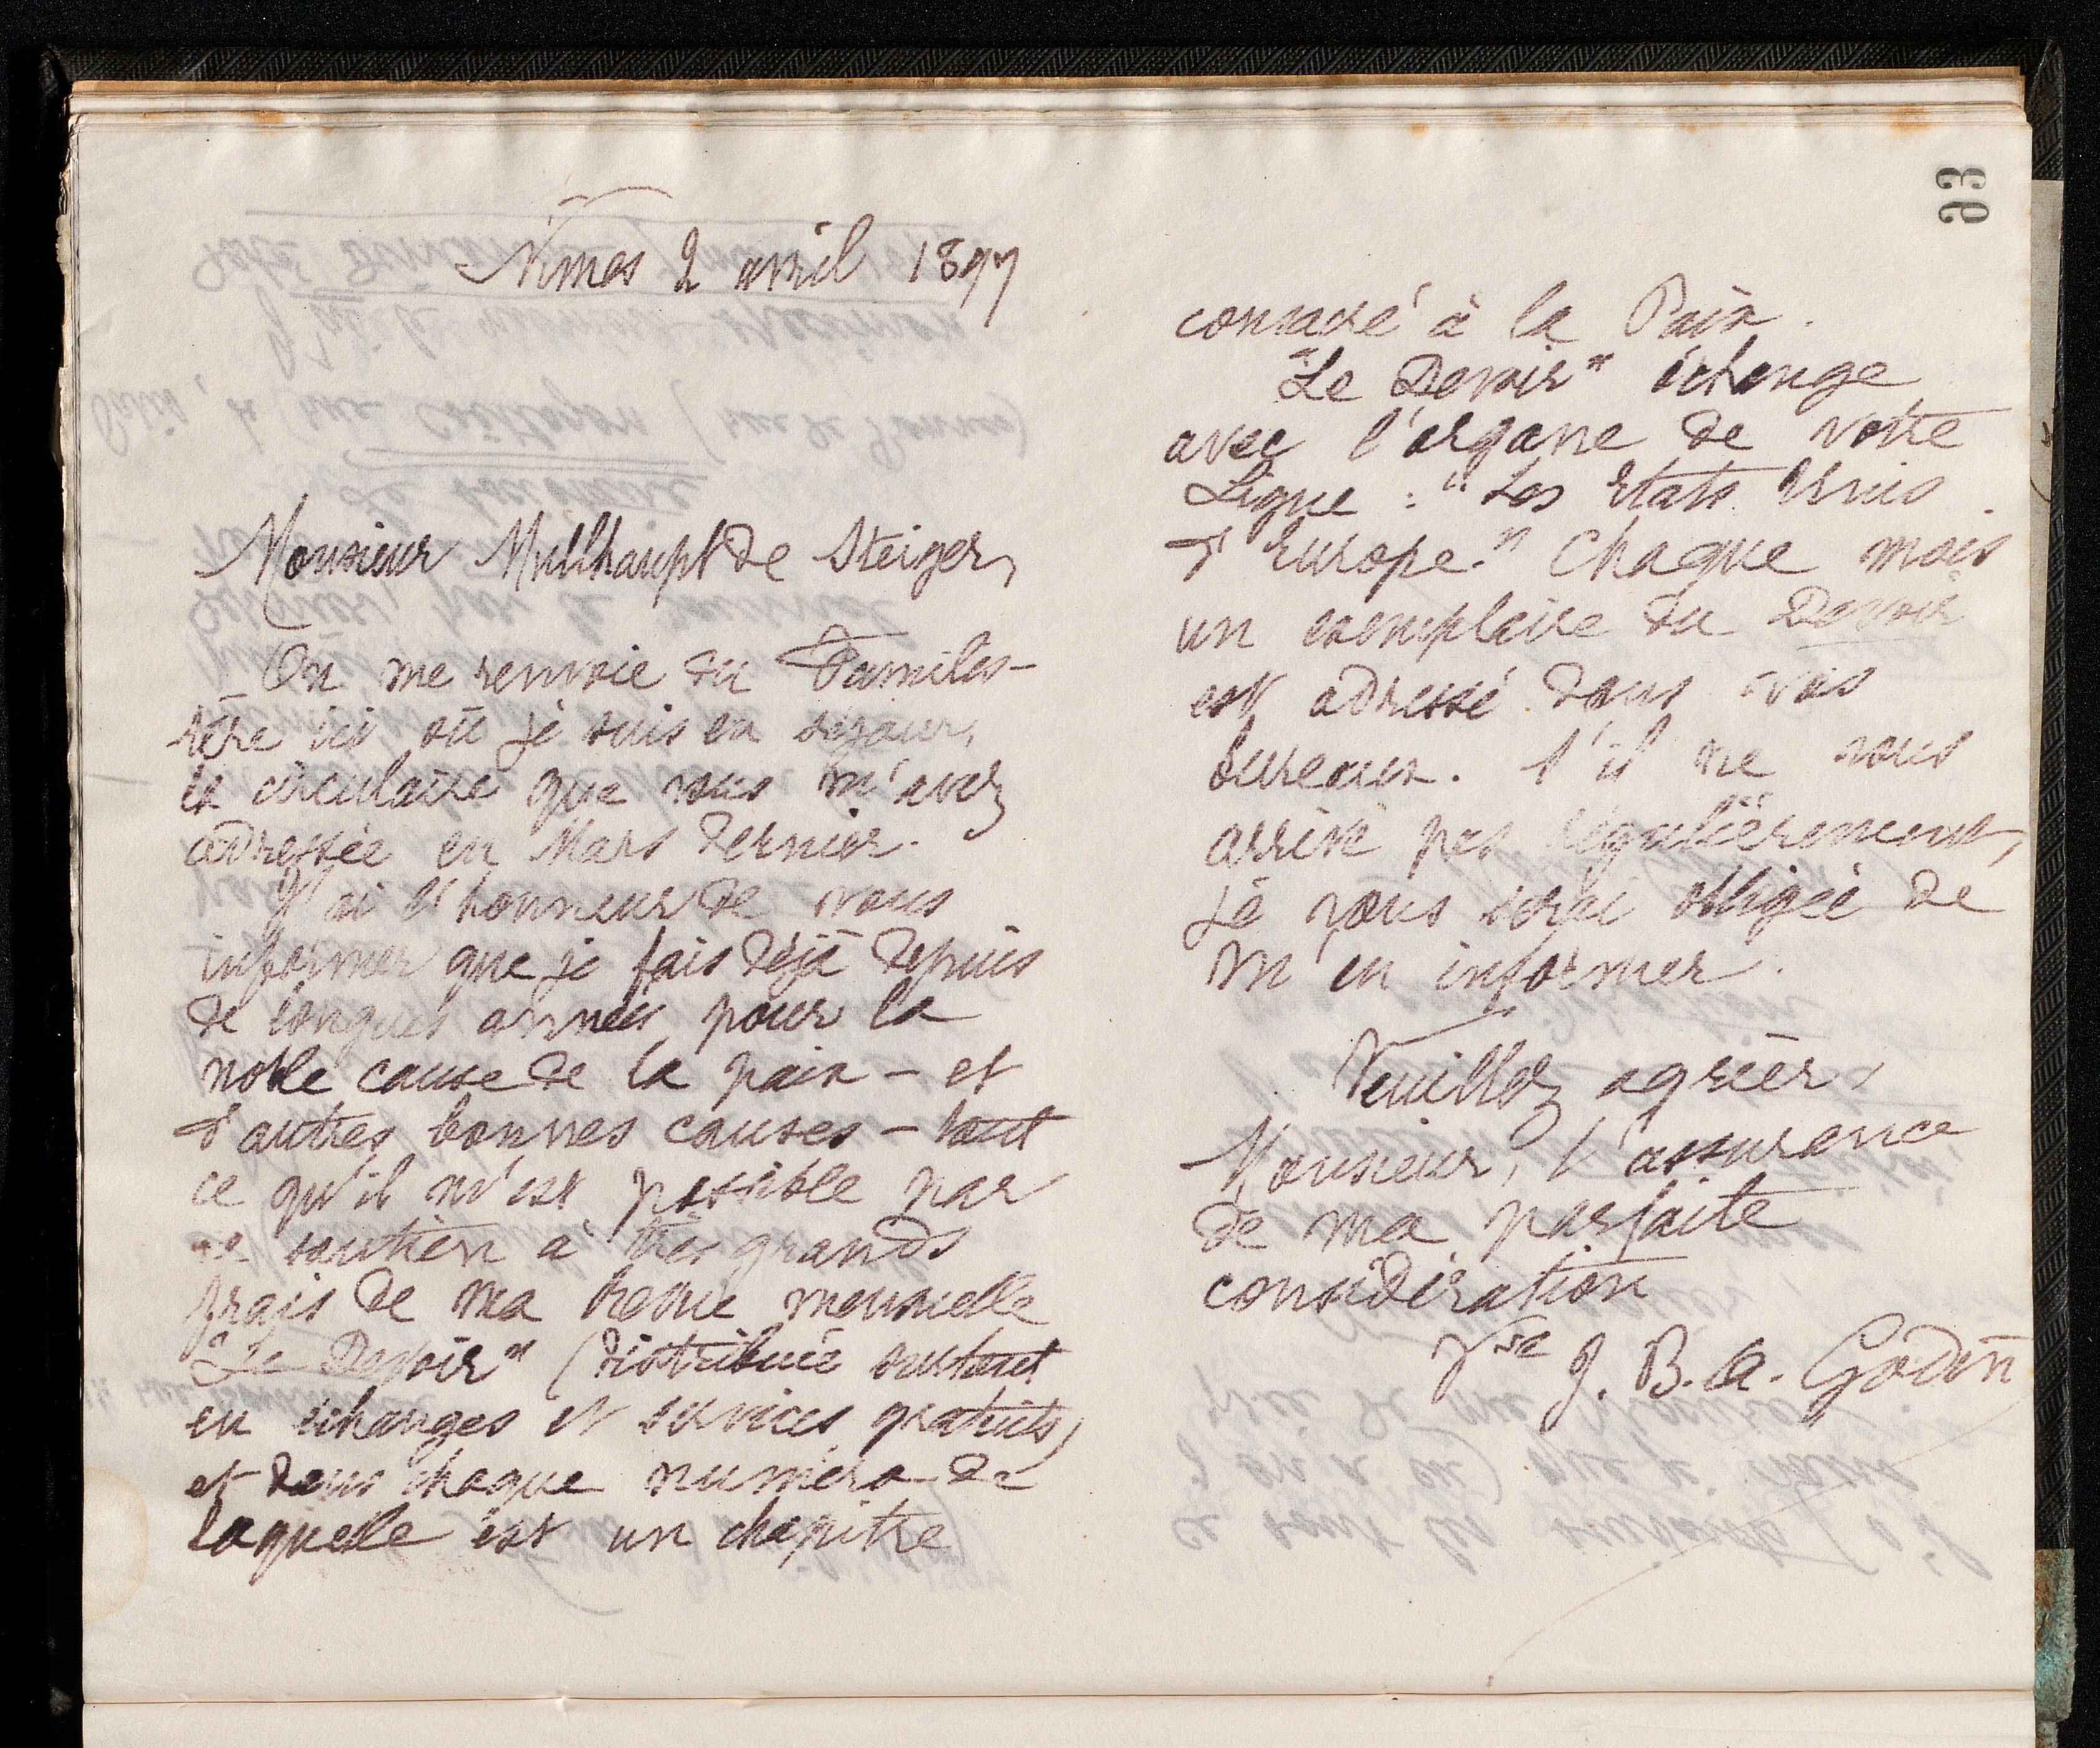 93
Nîmes 2 avril 1897
Monsieur Mullhaupt de Steiger,
On me renvoie du Familis-
tère ici où je suis en séjour,
la circulaire que vous m'avez
adressée en Mars dernier.
J'ai l'honneur de vous
informer que je fais déjà depuis
de longues années pour la
noble cause de la paix - et
d'autres bonnes causes - tout
ce qu'il m'est possible par
le soutien à très grands
frais de ma Revue mensuelle
"Le Devoir" (distribuée surtout
en échanges et services gratuits)
et dans chaque numéro de
laquelle est un chapitre
consacré à la Paix.
"Le Devoir" échange
avec l'organe de votre
Ligue : "Les Etats Unis
d'Europe." Chaque mois
un exemplaire du Devoir
est adressé dans vos
bureaux. S'il ne vous
arrive pas régulièrement,
je vous serai obligée de
m'en informer.
Veuillez agréer,
Monsieur, l'assurance
de ma parfaite
considération
Vve J. B. A. Godin